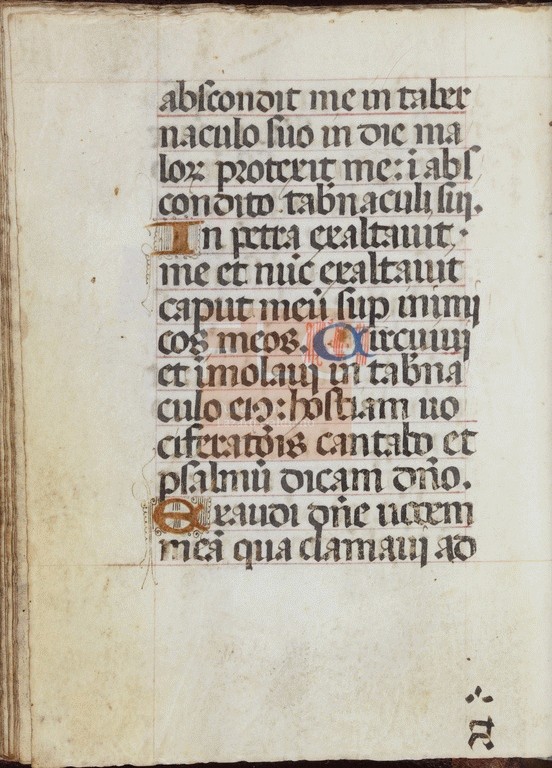 abscondit me in taber
naculo suo in die ma
loꝝ protexit me: i abs
condito tab̄naculi sui.
In petra exaltauit.
me et nūc exaltauit
caput meū sup inimi
cos meos. Circuiui
et īmolaui in tab̄na
culo eiꝰ: hostiam uo
ciferatōis cantabo et
psalmū dicam dn̄o.
Exaudi dn̄e uocem
meā qua clamaui ad